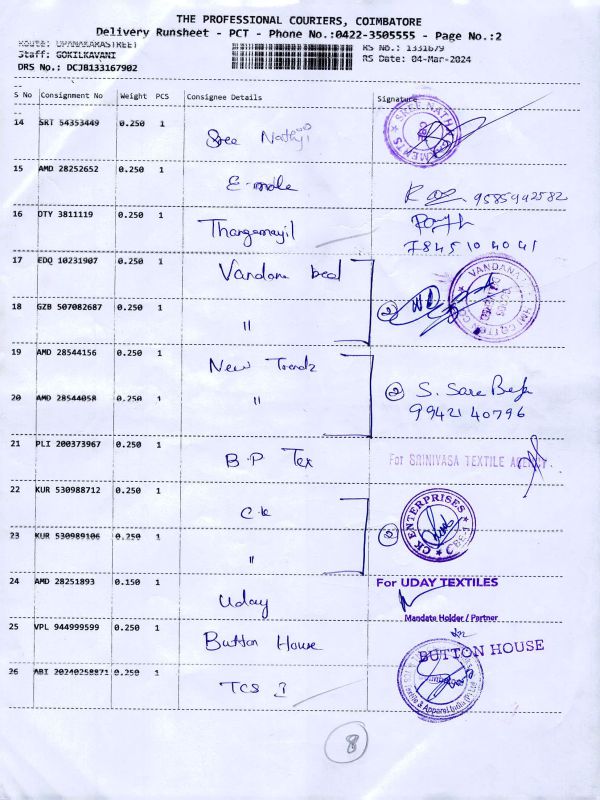 THE PROFESSIONAL COURIERS, COIMBATORE
Delivery Runsheet - PCT - Phone No.:0422-3505555 - Page No.:2
Route: UPANAKARASTREET RS No.: 1331679
Staff: GOKILKAVANI RS Date: 04-Mar-2024
DRS No.: DCJB133167902
S No Consignment No Weight PCS Consignee Details Signature
14 SRT 54353449 0.250 1 Sree Nathji SREE NATHJI GARMENTS
15 AMD 28252652 0.250 1 E-mole 9585942582
16 DTY 3811119 0.250 1 Thangamayil 7845104041
17 EDQ 10231907 0.250 1 Vandana bed VANDANA
18 GZB 507082687 0.250 1 " 2
19 AMD 28544156 0.250 1 New Trendz
20 AMD 28544058 0.250 1 " 2 9942140796
21 PLI 200373967 0.250 1 B.P Tex For SRINIVASA TEXTILE AGENCY.
22 KUR 530988712 0.250 1 C k CK ENTERPRISES CBE-1
23 KUR 530989106 0.250 1 "
24 AMD 28251893 0.150 1 Uday For UDAY TEXTILES
Mandate Holder / Partner
25 VPL 944999599 0.250 1 Button House BUTTON HOUSE
26 ABI 20240258871 0.250 1 TCS Textile & Apparel India (P) Ltd
8